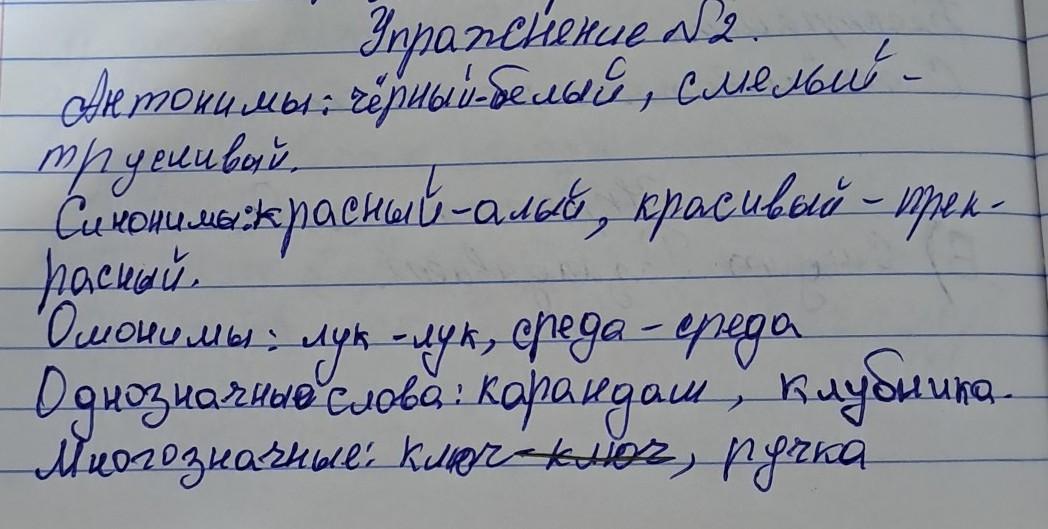 Упражнение №2.
Антонимы: чёрный-белый, смелый -
трусливый.
Синонимы: красный-алый, красивый - прек-
расный.
Омонимы: лук - лук, среда - среда
Однозначные слова: карандаш, клубника.
Многозначные: ключ - ключ, ручка